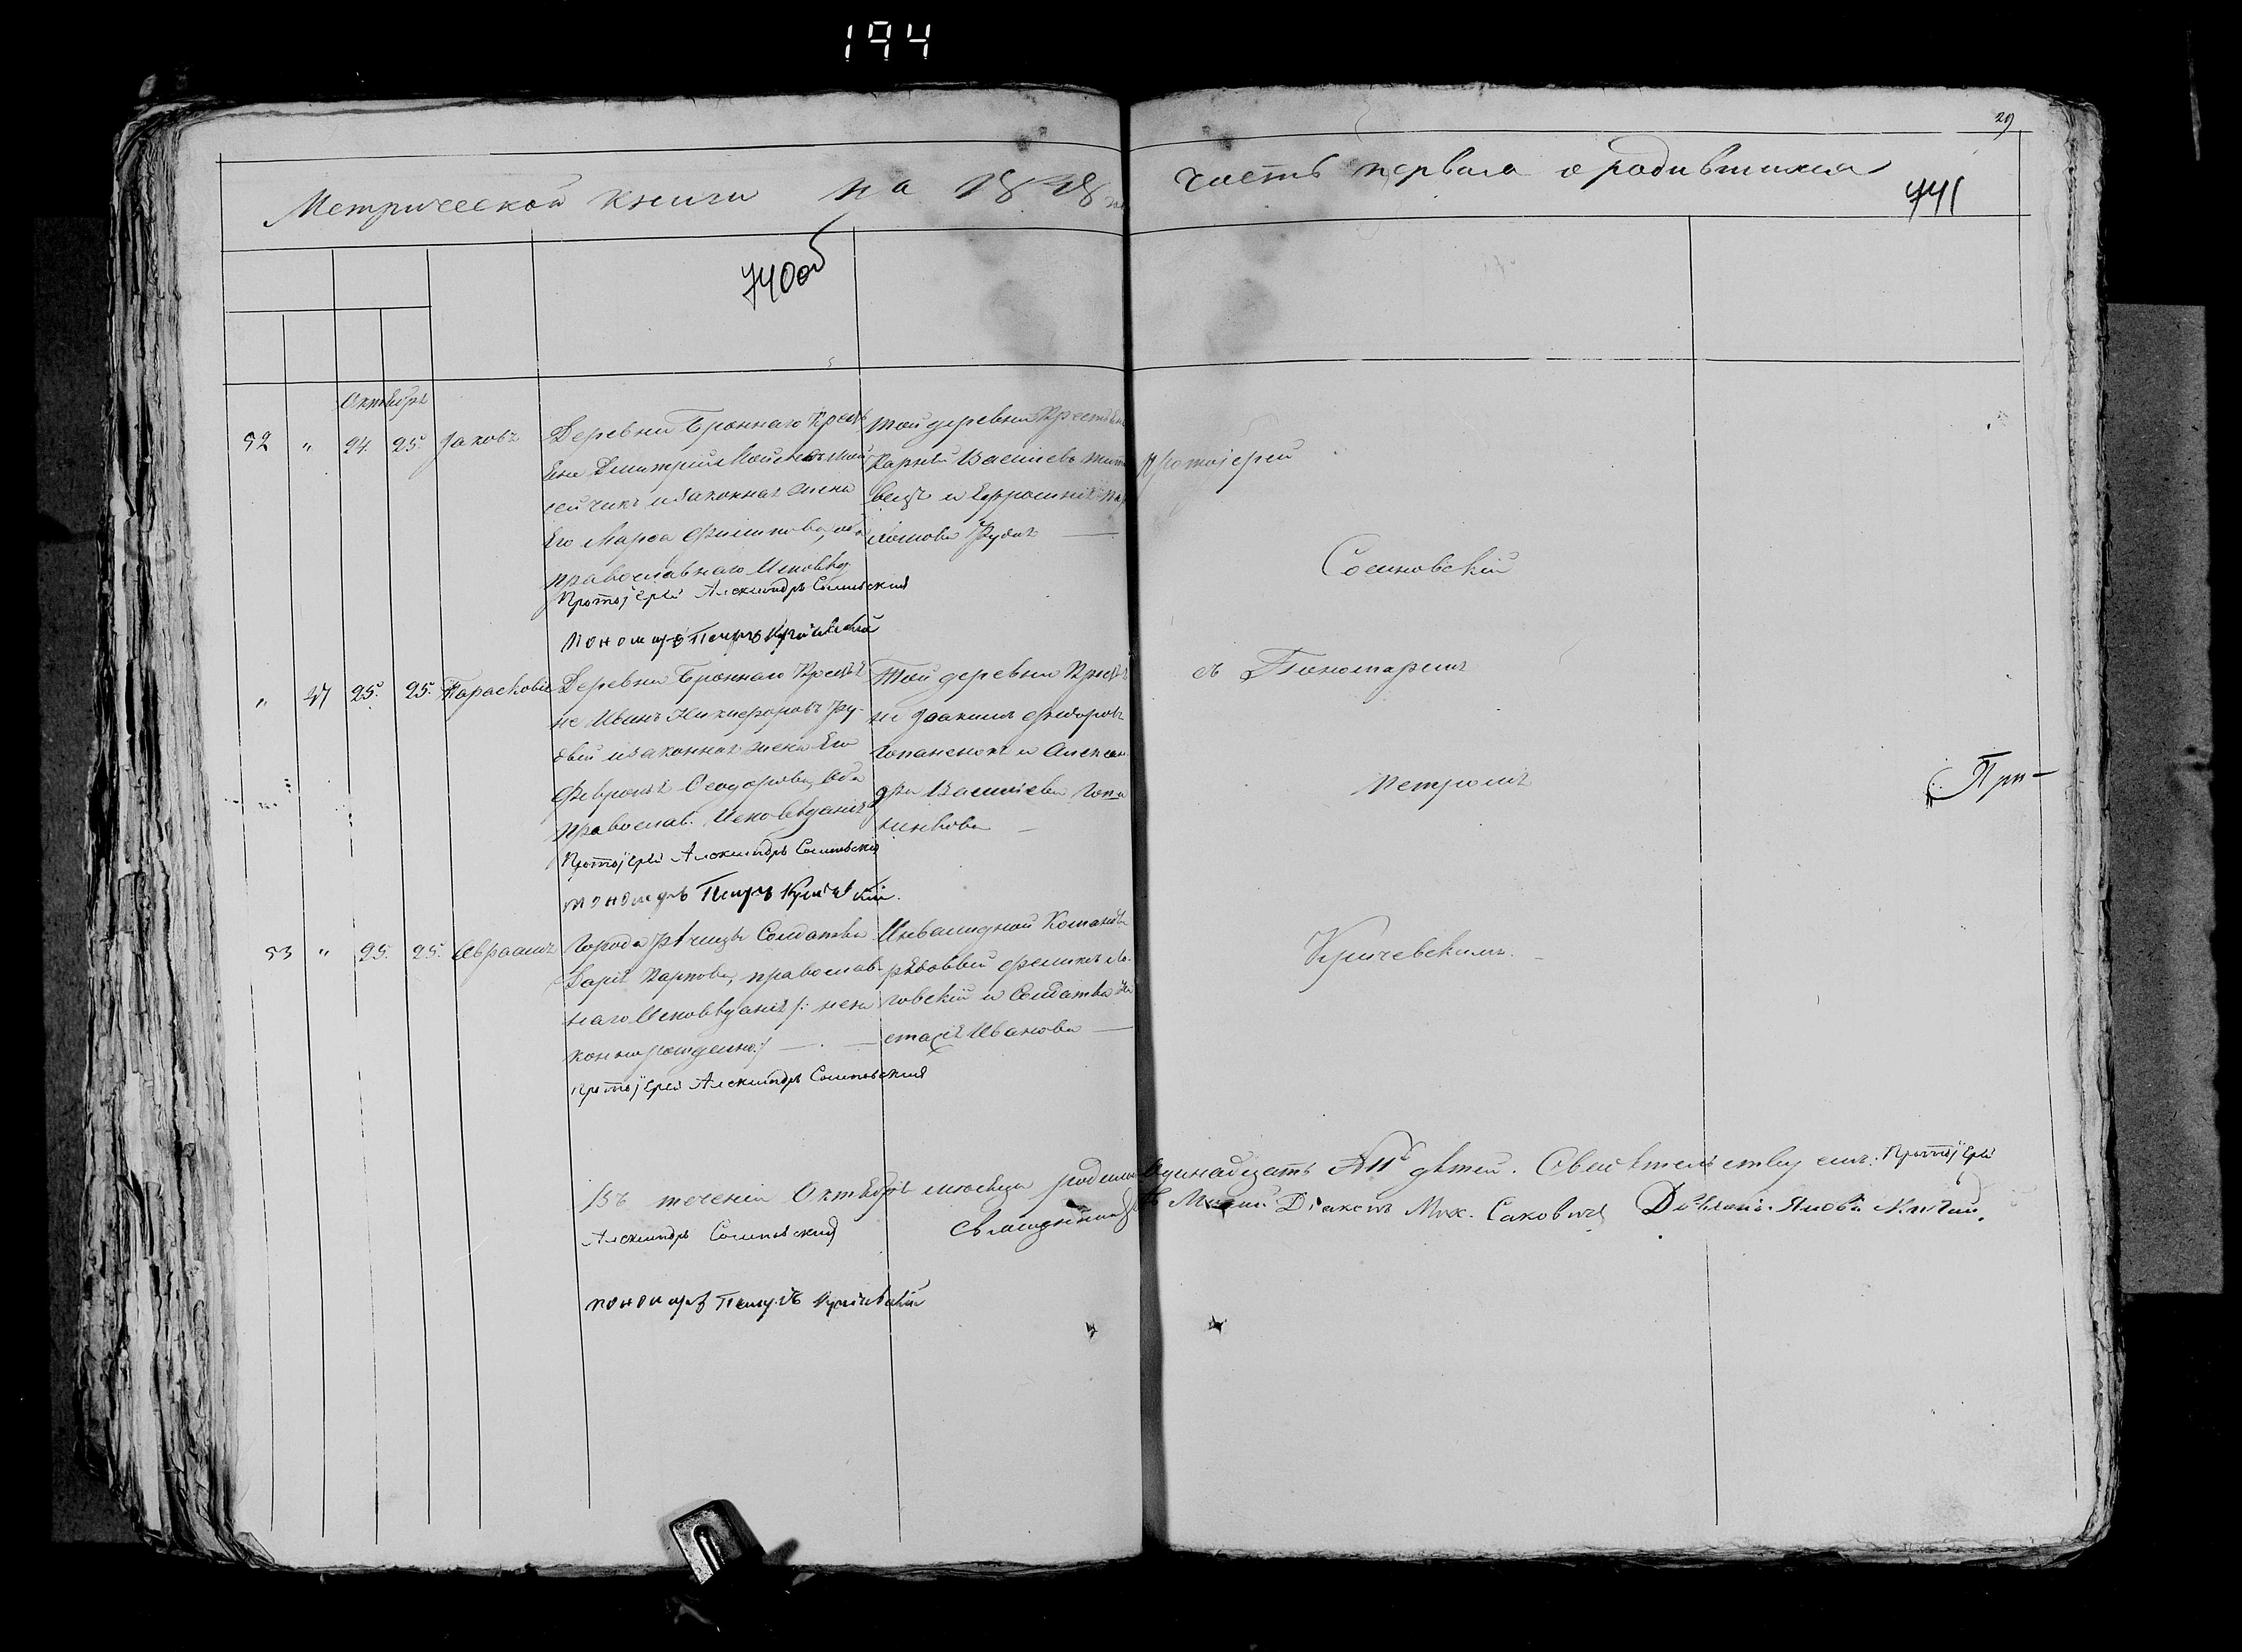 194
29
Метрической книги на 1848 часть первая о родившихся
740об
741
Октябрь
52 " 24. 25. Іаковъ
Деревни Броннаго Крестья
Дмитрій Мойсеевъ Мой
сейчикъ и законная жена
Его Марѳа Филипова, оба
православнаго Исповѣд
Протоіерей Александръ Солиновскій
Пономаръ Петръ Кричевскій
той деревни Крестьян
Карней Василіевъ
вецъ и Ефросинія
Рудая
Протоіерей
Солиновскій
" 47 25. 25. Парасковія
Деревни Броннаго Крестья
не Иванъ Никифоровъ Ру-
дый и законная жена Его
Февронія Ѳеодорова, оба
православ. Исповѣданія
Протоіерей Александръ Солиновскій
пономаръ Петръ Кричевскій.
Той деревни Крестья
не Іоакимъ Федоровъ
Гопаненокъ и Алексан
дра Василіева Гопа
ненкова
съ Пономаремъ
Петромъ
При-
53 " 25. 25. Авраамъ
Города Рѣчицы Солдатка
Дарія Карпова, православ-
наго Исповѣданія /: неза
коннорожденно:/
Протоіерей Александръ Солиновскій
Инвалидной Команды
рядовый Феликсъ
говскій и Солдатка На
стасія Иванова
Кричевскимъ.
Въ теченіи Октября мѣсяца родилось Одинадцать 11 дѣтей. Свидѣтельствуемъ: Протоіерей
Александръ Солиновскій Священникъ Діаконъ Мих. Саковичъ
пономаръ Петръ Кричевскій